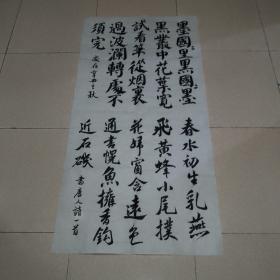 墨團〻里黑團〻墨
黑叢中花葉寬
試看筆從烟裏
過波瀾轉處不
須完
春水初生乳燕
飛黃蜂小尾撲
花歸窗含遠色
通書幌魚擁香鈎
近石磯 書唐人詩一首